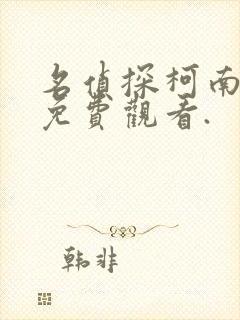 名偵探柯南
免費觀看.
韩非